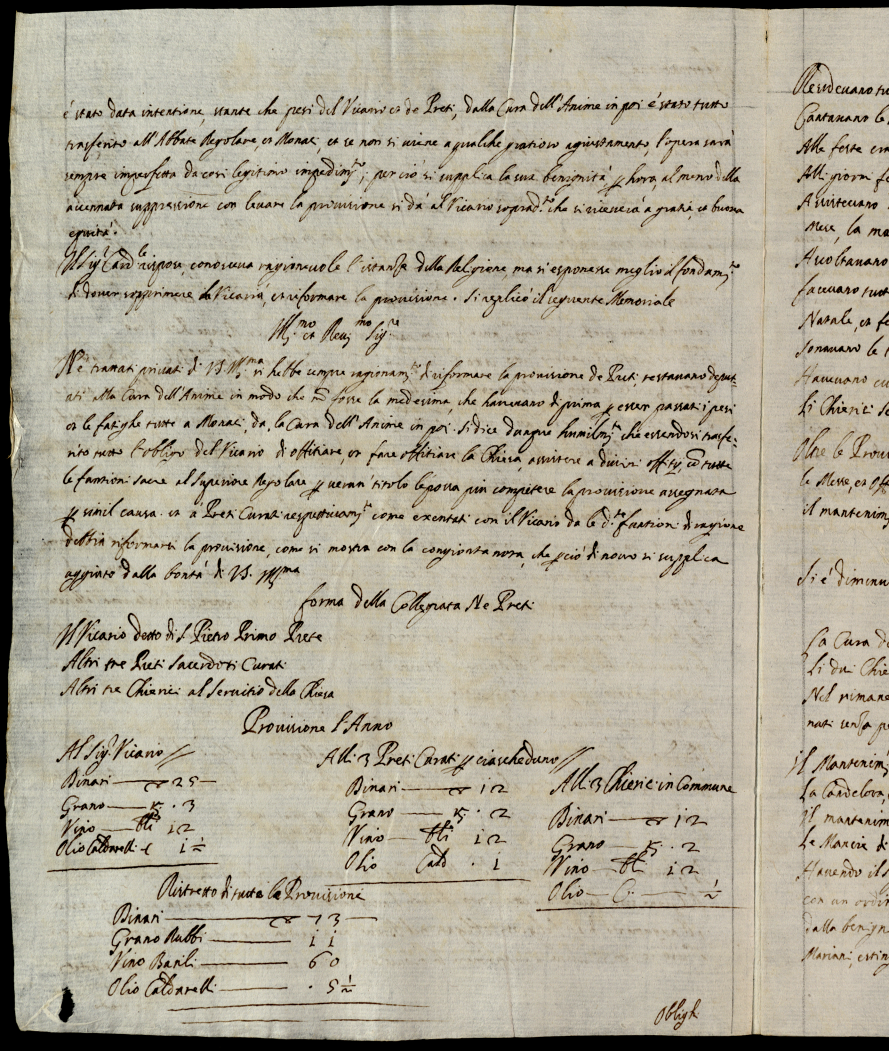 é stato data intentione, stante che pesi del Vicario et de Preti, dalla Cura dell'Anime in poi é stato tutto
trasferito all'Abbate Regolare, et Monaci, et se non si viene a qualche gratioso agiustamento l'opera sarà
sempre imperfetta da così legitimo impedim.to; perciò si supplica la sua benignità p hora, al meno della
accennata suppressione con levare la provisione si dà al Vicario soprad.to che si riceverà a gratia, et buona
equità.
Il Sig.r Card.le rispose, conosceva ragionevole l'istanza della Religione ma si esponesse meglio il fondam.to
di dover sopprimere la Vicaria, et riformare la provisione. Si replicò il seguente Memoriale
Ill.mo et Rev.mo Sig.re
Ne trattati privati di V.S. Ill.ma si hebbe sempre ragionam.to di riformare la provisione de Preti restavano deput-
ati alla Cura dell'Anime in modo che nō fosse la medesima, che havevano di prima p esser passati i pesi
et le fatighe tutte a Monaci, da la Cura dell'Anime in poi. Si dice dunque humilm.te che essendosi trasfe-
rito tutto l'obligo del Vicario di offitiare, et fare offitiare la Chiesa, assistere a divini offitij, et tutte
le funtioni sacre al Superiore Regolare p verun titolo le possa più competere la provisione assegnata
p simil causa. et a Preti Curati respettivam.te come exentati con il Vicario da le d.te funtioni di ragione
debbia riformarsi la provisione, come si mostra con la congionta nota, che p ciò di novo si supplica
aggiuto dalla bontà di V.S. Ill.ma
forma della Collegiata Ne Preti
Il Vicario detto di S. Pietro Primo Prete
Altri tre Preti Sacerdoti Curati
Altri tre Chierici al Servitio della Chiesa
Provisione l'Anno
Al Sig.r Vicario
Dinari 25
Grano 3
Vino bli 12
Olio Caldarelli 1 ½
Alli 3 Preti Curati p ciascheduno
Dinari 12
Grano 2
Vino bli 12
Olio Cald. 1
Alli 3 Chierici in Commune
Dinari 12
Grano 2
Vino bli 12
Olio C. ½
Ristretto di tutte le Provisione
Dinari 73
Grano Rubbi 11
Vino Barili 60
Olio Caldarelli 5 ½
Oblighi
Resedevano tu
Cantavano le
Alle feste
Alli giorni fe
Assistevano
Mese, la ma
Ascoltavano
facevano tutt
Natale, et fe
Sonavano le
Havevano cu
Li Chierici se
Oltre le Provi
le Messe, et off
il mantenim
Si é diminu
La Cura de
Li dui Chie
Nel rimane
nati senza p
il Mantenim
La Candelora,
il mantenim
Le Mancie di
Havendo il S
con un ordin
dalla benign
Mariani, esting